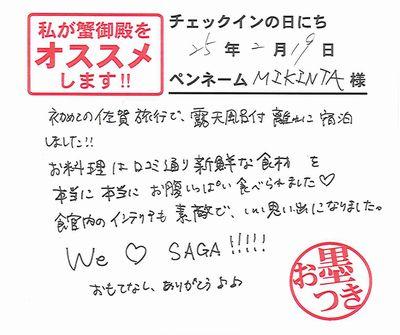 私が蟹御殿を
オススメ
します!!
チェックインの日にち
25年2月19日
ペンネーム MIKINTA 様
初めての佐賀旅行で、露天風呂付 離れに宿泊
しました!!
お料理は口コミ通り新鮮な食材を
本当に本当にお腹いっぱい食べられました♡
館内のインテリアも素敵で、いい思い出になりました。
We ♡ SAGA!!!!!
おもてなし、ありがとう♪♪
お墨つき